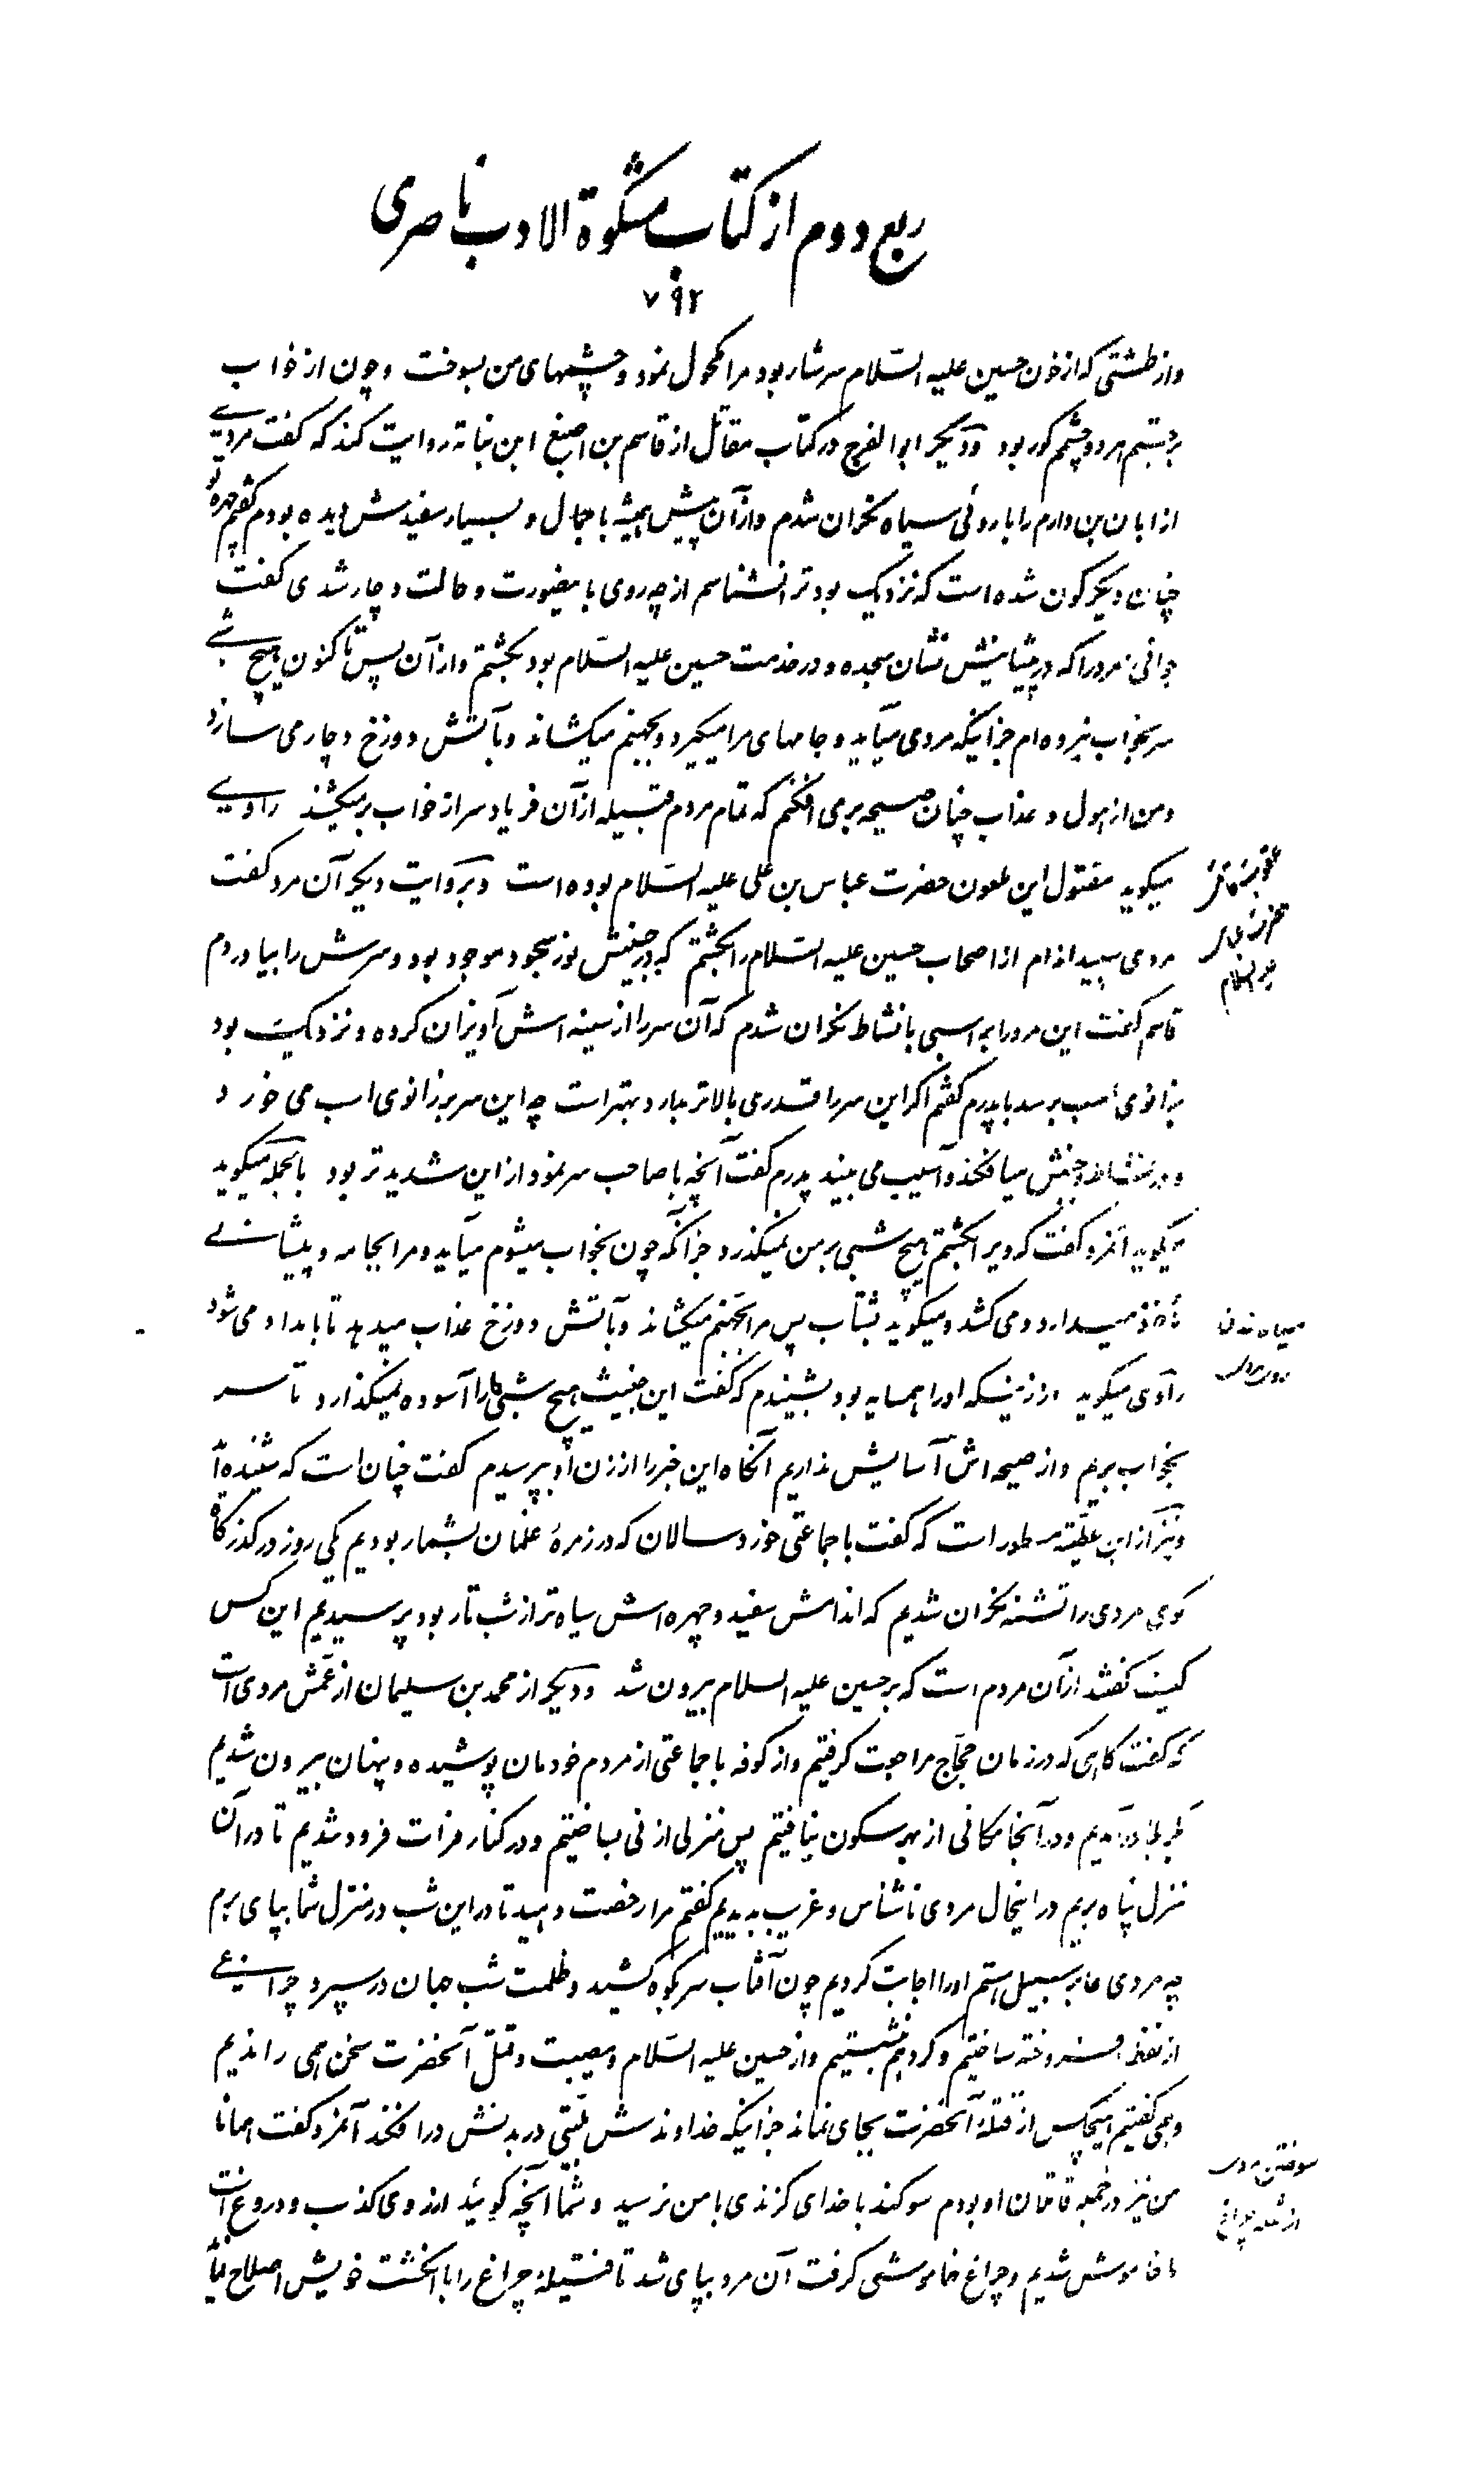 ربع دوم از کتاب مشکوة الادب ناصری
۷۹۲
و از طشتی که از خون حسین علیه السّلام سرشار بود مرا مکحول نمود و چشمهای من بسوخت و چون از خواب
بجستم هر دو چشم کور بود و دیگر ابو الفرج در کتاب مقاتل از قاسم بن اصبغ ابن نباته روایت کند که گفت مردی
از ابان بن دارم را با روئی سیاه نگران شدم و از آن پیش همیشه با جمال و بسیار سفیدش دیده بودم گفتم چهره تو
چنان دیگرگون شده است که نزدیک بود ترا نشناسم از چه روی باینصورت و حالت دچار شدی گفت
جوانی امرد را که در پیشانیش نشان سجده و در خدمت حسین علیه السّلام بود بکشتم و از آن پس تا کنون هیچ شبی
سر بخواب نبرده ام جز اینکه مردی میآید و جامهای مرا میگیرد و بجهنم میکشاند و بآتش دوزخ دچار می سازد
و من از هول و عذاب چنان صیحه بر می افکنم که تمام مردم قبیله از آن فریاد سر از خواب بر میکشند راوی
میگوید مقتول این ملعون حضرت عباس بن علی علیه السّلام بوده است و بروایت دیگر آن مرد گفت
مردی سپید اندام از اصحاب حسین علیه السّلام را بکشتم که در جبینش نور سجود موجود بود و سرش را بیاوردم
قاسم گفت این مرد را بر اسبی با نشاط نگران شدم که آن سر را از سینه اسش آویزان کرده و نزدیک بود
بزانوی اسب برسد با پدرم گفتم اگر این سر را قدری بالاتر بدارد بهتر است چه این سر بر زانوی اسب می خورد
و از نشاط و جنبش میافکند و آسیب می بیند پدرم گفت آنچه با صاحب سر نمود از این شدیدتر بود بالجمله میگوید
میگوید آنمرد گفت که ویرا بکشتم هیچ شبی بر من نمیگذرد جز آنکه چون بخواب میشوم میآید و مرا بجامه و پیشانی
مأخوذ میدارد و می کشد و میگوید بشتاب پس مرا بجهنم میکشاند و بآتش دوزخ عذاب میدهد تا بامداد می شود
راوی میگوید و از زنیکه او را همسایه بود بشنیدم که گفت این خبیث هیچ شبی ما را آسوده نمیگذارد تا سر
بخواب بریم و از صیحه اش آسایش نداریم آنگاه این خبر را از زن او بپرسیدم گفت چنان است که شنیده
و نیز از ابن عطیّه مسطور است که گفت با جماعتی خورد سالان که در زمرهٔ غلمان بشمار بودیم یکی روز در گذرگاه
کوی مردی را تشنه نگران شدیم که اندامش سفید و چهره اش سیاه تر از شب تار بود پرسیدیم این کس
کیست گفتند از آن مردم است که بر حسین علیه السلام بیرون شد و دیگر از محمد بن سلیمان از عمّش مروی است
که گفت گاهی که در زمان حجّاج مراجعت گرفتیم و از کوفه با جماعتی از مردم خودمان پوشیده و پنهان بیرون شدیم
بکربلا در آمدیم و در آنجا مکانی از بهر سکون نیافتیم پس منزلی از نی بساختیم و در کنار فرات فرود شدیم تا در آن
منزل پناه بریم در اینحال مردی ناشناس و غریب بدیدیم گفتم مرا رخصت دهید تا در این شب در منزل شما بپای برم
چه مردی عابر سبیل هستم او را اجابت کردیم چون آفتاب سر بکوه کشید و ظلمت شب جهان در سپرد چراغی
از نفط افروخته ساختیم و گرد هم بنشستیم و از حسین علیه السّلام و مصیبت و قتل آنحضرت سخن همی راندیم
و همی گفتیم هیچکس از قتلهٔ آنحضرت بجای نماند جز اینکه خداوندش بلیّتی در بدنش در افکند آنمرد گفت همانا
من نیز در جمله قاتلان او بودم سوگند با خدای گزندی با من نرسید و شما آنچه گوئید از روی کذب و دروغ است
ما خاموش شدیم و چراغ خاموشی گرفت آن مرد بپای شد تا فتیلهٔ چراغ را با انگشت خویش اصلاح نماید
علیه السلام
سیاه شدن
سوختن مردی
از شعله چراغ